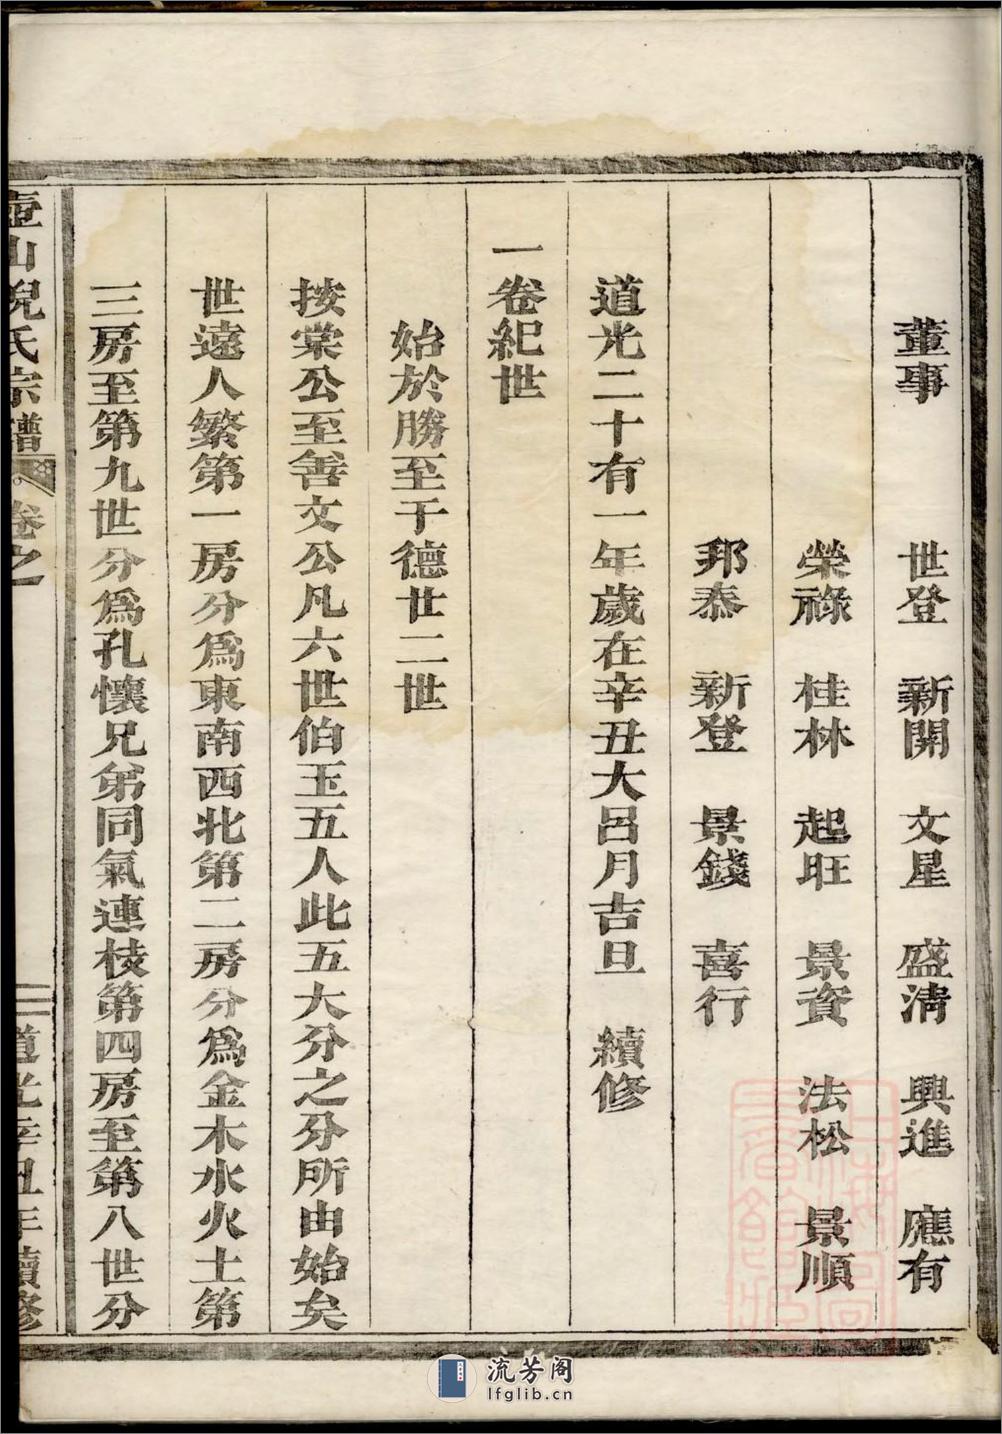 董事 世登 新開 文星 盛淸 興進 應有
榮祿 桂林 起旺 景資 法松 景順
邦泰 新登 景錢 喜行
道光二十有一年歲在辛丑大呂月吉旦 續修
一卷紀世
始於勝至于德廿二世
按棠公至善文公凡六世伯玉五人此五大分之分所由始矣
世遠人繁第一房分爲東南西北第二房分爲金木水火土第
三房至第九世分爲孔懷兄弟同氣連枝第四房至第八世分
壺山倪氏宗譜 卷之一 二 道光辛丑年續修
流芳阁
lfglib.cn